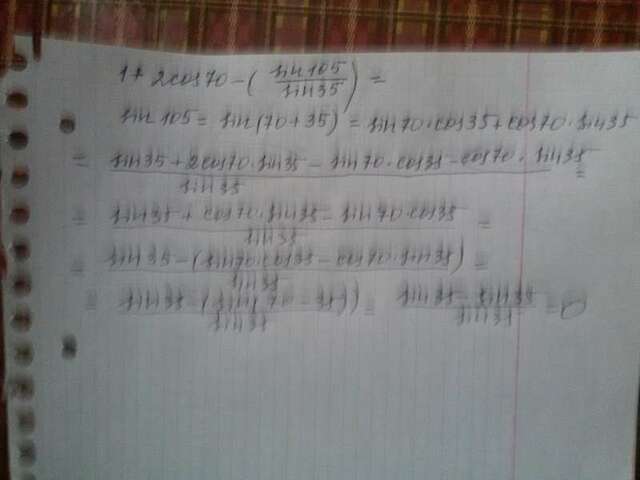 1+ 2cos70 - (sin105/sin35) =
sin 105 = sin(70+35) = sin70·cos35+cos70·sin35
= (sin35+2cos70·sin35 - sin70·cos35 - cos70·sin35)/sin35 =
= (sin35 + cos70·sin35 - sin70·cos35)/sin35 =
= (sin35 - (sin70·cos35 - cos70·sin35))/sin35 =
= (sin35 - (sin(70-35)))/sin35 = (sin35 - sin35)/sin35 = 0